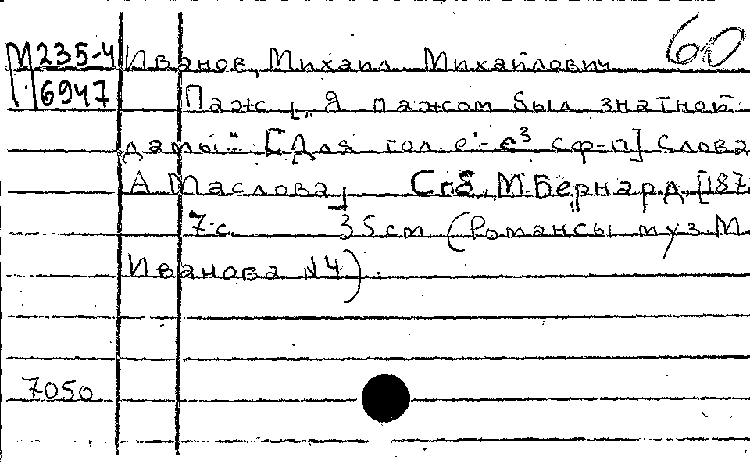 60
М235-4 Иванов, Михаил Михайлович
6947 Паж „Я пажом был знатной
дамы" [Для гол с'-е³ с ф-п] Слова
А Маслова, Спб, М. Бернард, [187
7 с. 35 см (Романсы муз М
Иванова №4).
7050